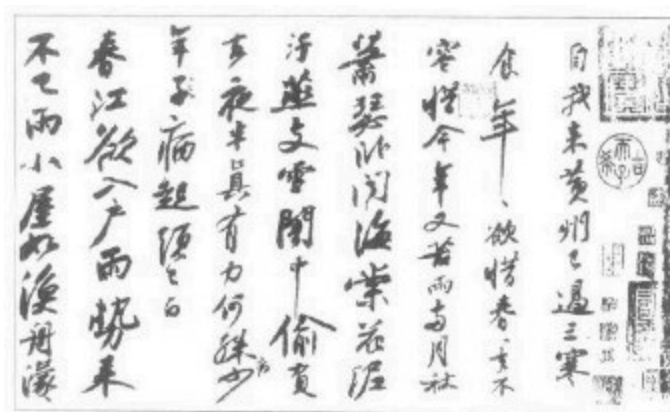 自我来黄州已過三寒
食年〻欲惜春〻去不
容惜今年又苦雨兩月秋
蕭瑟卧聞海棠花泥
汙燕支雪闇中偷負
去夜半真有力何殊少
年子病起頭已白
春江欲入户雨勢来
不已雨小屋如漁舟濛